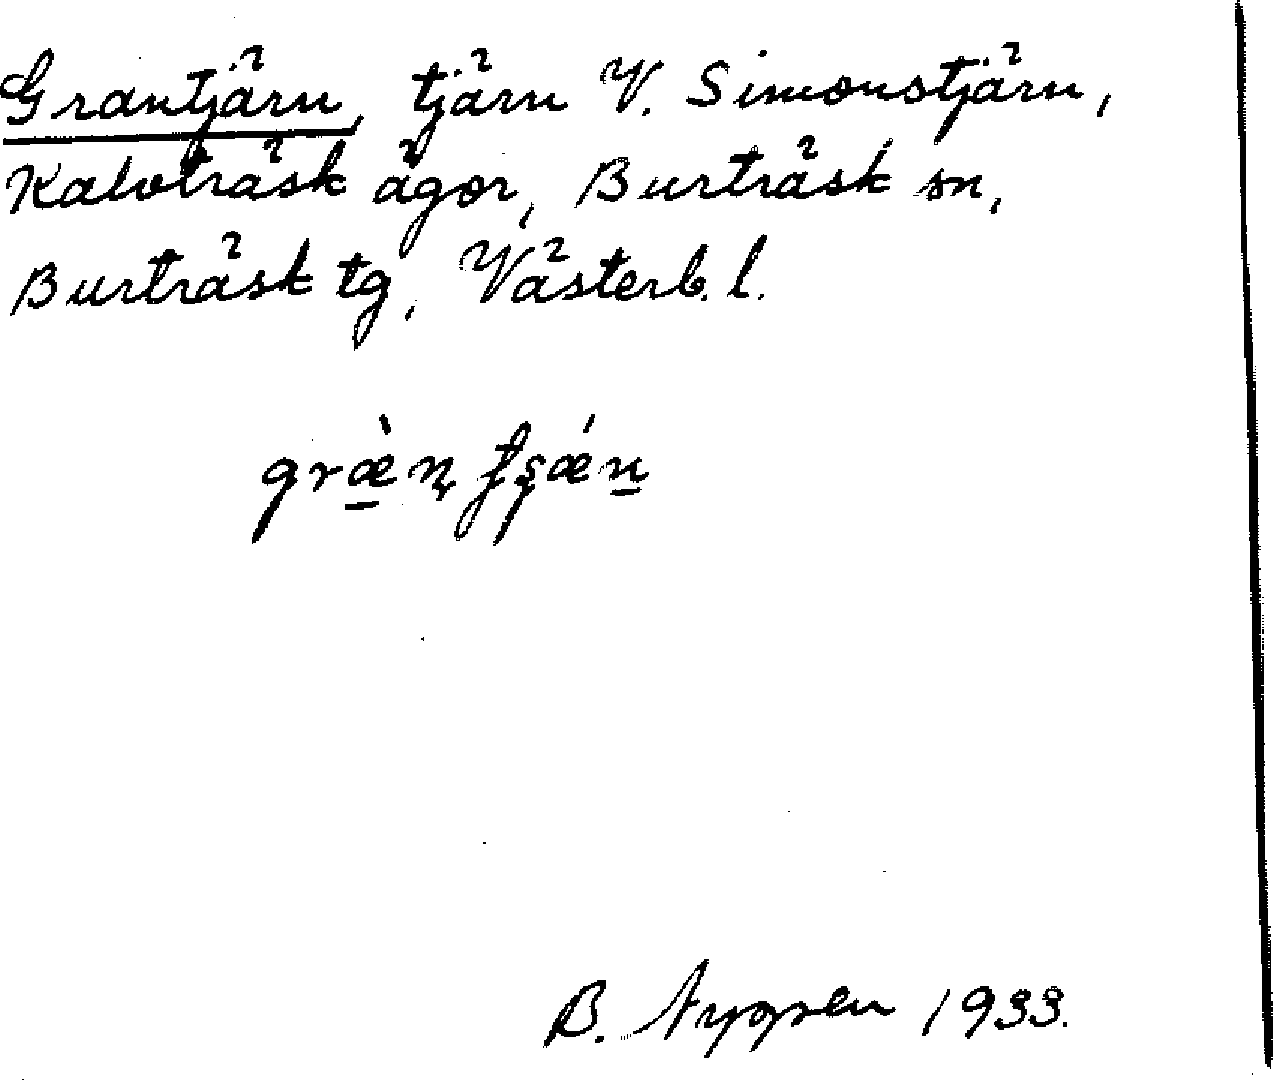 Grantjärn, tjärn V. Simonstjärn,
Kalvträsk ägor, Burträsk sn,
Burträsk tg, Västerb. l.
B. Nygren 1933.